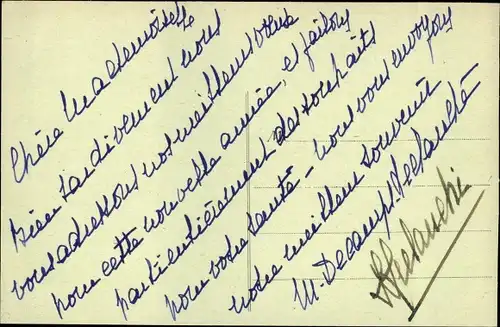 Chère Mademoiselle
Bien tardivement nous
vous adressons nos meilleurs vœux
pour cette nouvelle année, et faisons
particulièrement des souhaits
pour votre santé – nous vous envoyons
notre meilleur souvenir
M. Decamp